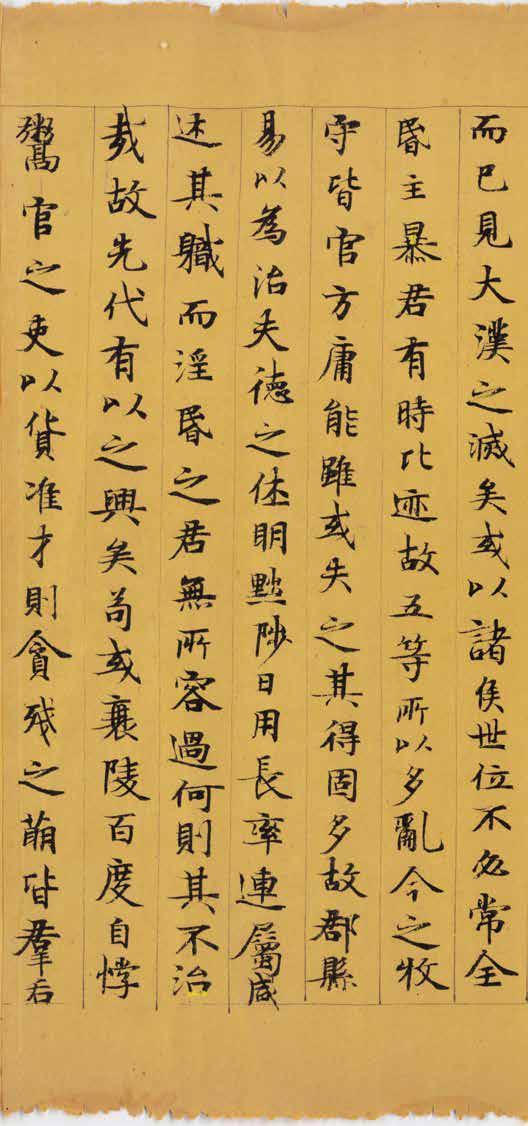 而已見大漢之滅矣或以諸侯世位不必常全
昬主暴君有時比迹故五等所以多亂今之牧
守皆官方庸能雖或失之其得固多故郡縣
易以為治夫德之休明黜陟日用長率連屬咸
述其職而淫昬之君無所容過何則其不治
哉故先代有以之興矣苟或衰陵百度自悖
鬻官之吏以貨准才則貪殘之萌皆羣后